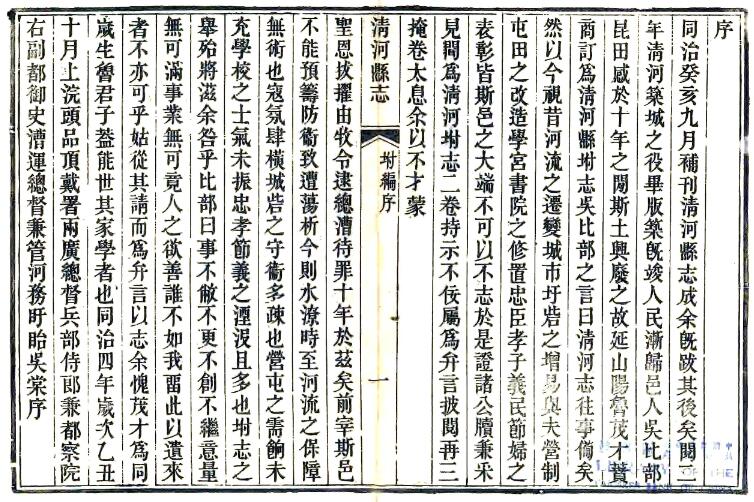 序
同治癸亥九月補刊清河縣志成余旣跋其後矣閱二
年清河築城之役畢版築旣竣人民漸歸邑人吳比部
昆田感於十年之閒斯土興廢之故延山陽魯茂才蕡
商訂爲清河縣坿志吳比部之言曰清河志往事備矣
然以今視昔河流之遷變城市圩砦之增易與夫營制
屯田之改造學宮書院之修置忠臣孝子義民節婦之
表彰皆斯邑之大端不可以不志於是證諸公牘兼采
見聞爲清河坿志二卷持示不佞屬爲弁言披閱再三
掩卷太息余以不才蒙
清河縣志
坿編序
一
聖恩拔擢由牧令逮總漕待罪十年於茲矣前宰斯邑
不能預籌防衞致遭蕩析今則水潦時至河流之保障
無術也寇氛肆橫城砦之守衞多疎也營屯之需餉未
充學校之士氣未振忠孝節義之湮沒且多也坿志之
舉殆將滋余咎乎比部曰事不敝不更不創不繼意量
無可滿事業無可竟人之欲善誰不如我畱此以遺來
者不亦可乎姑從其請而爲弁言以志余愧茂才爲同
歲生魯君子葢能世其家學者也同治四年歲次乙丑
十月上浣頭品頂戴署兩廣總督兵部侍郎兼都察院
右副都御史漕運總督兼管河務盱眙吳棠序